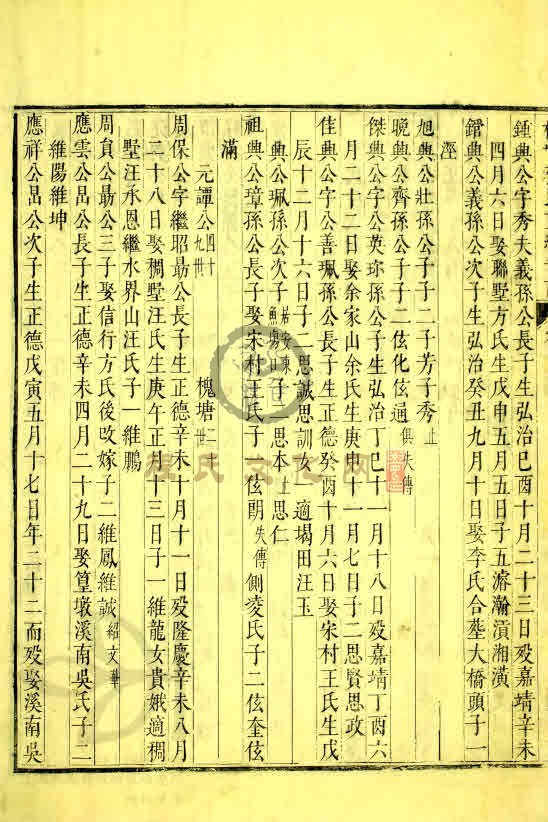 鍾典公字秀夫義孫公長子生弘治己酉十月二十三日殁嘉靖辛未
四月六日娶聯墅方氏生戊申五月五日子五濬瀚澬湘潢
錧典公義孫公次子生弘治癸丑九月十日娶李氏合塟大橋頭子一
涇
旭典公壯孫公子子二子芳子秀止
晚典公齊孫公子子二伭化伭通俱失傳
傑典公字公英珎孫公子生弘治丁巳十一月十八日殁嘉靖丁酉六
月二十二日娶余家山余氏生庚申十一月七日子二思賢思政
佳典公字公善珮孫公長子生正德癸酉十月六日娶宋村王氏生戊
辰十二月十六日子二思誠思訓女一適塌田汪玉
典公珮孫公次子子二思本止思仁
祖典公璋孫公長子娶宋村王氏子一伭朗失傳側凌氏子二伭奎伭
滿
元譚公四十九世 槐塘二十世
周保公字繼昭勗公長子生正德辛未十月十一日殁隆慶辛未八月
二十八日娶稠墅汪氏生庚午正月十三日子一維龍女貴娥適稠
墅汪承恩繼水界山汪氏子一維鵬
周負公勗公三子娶信行方氏後改嫁子二維鳳維誠紹文華
應雲公昌公長子生正德辛未四月二十九日娶篁墩溪南吳氏子二
維陽維坤
應祥公昌公次子生正德戊寅五月十七日年二十二而殁娶溪南吳